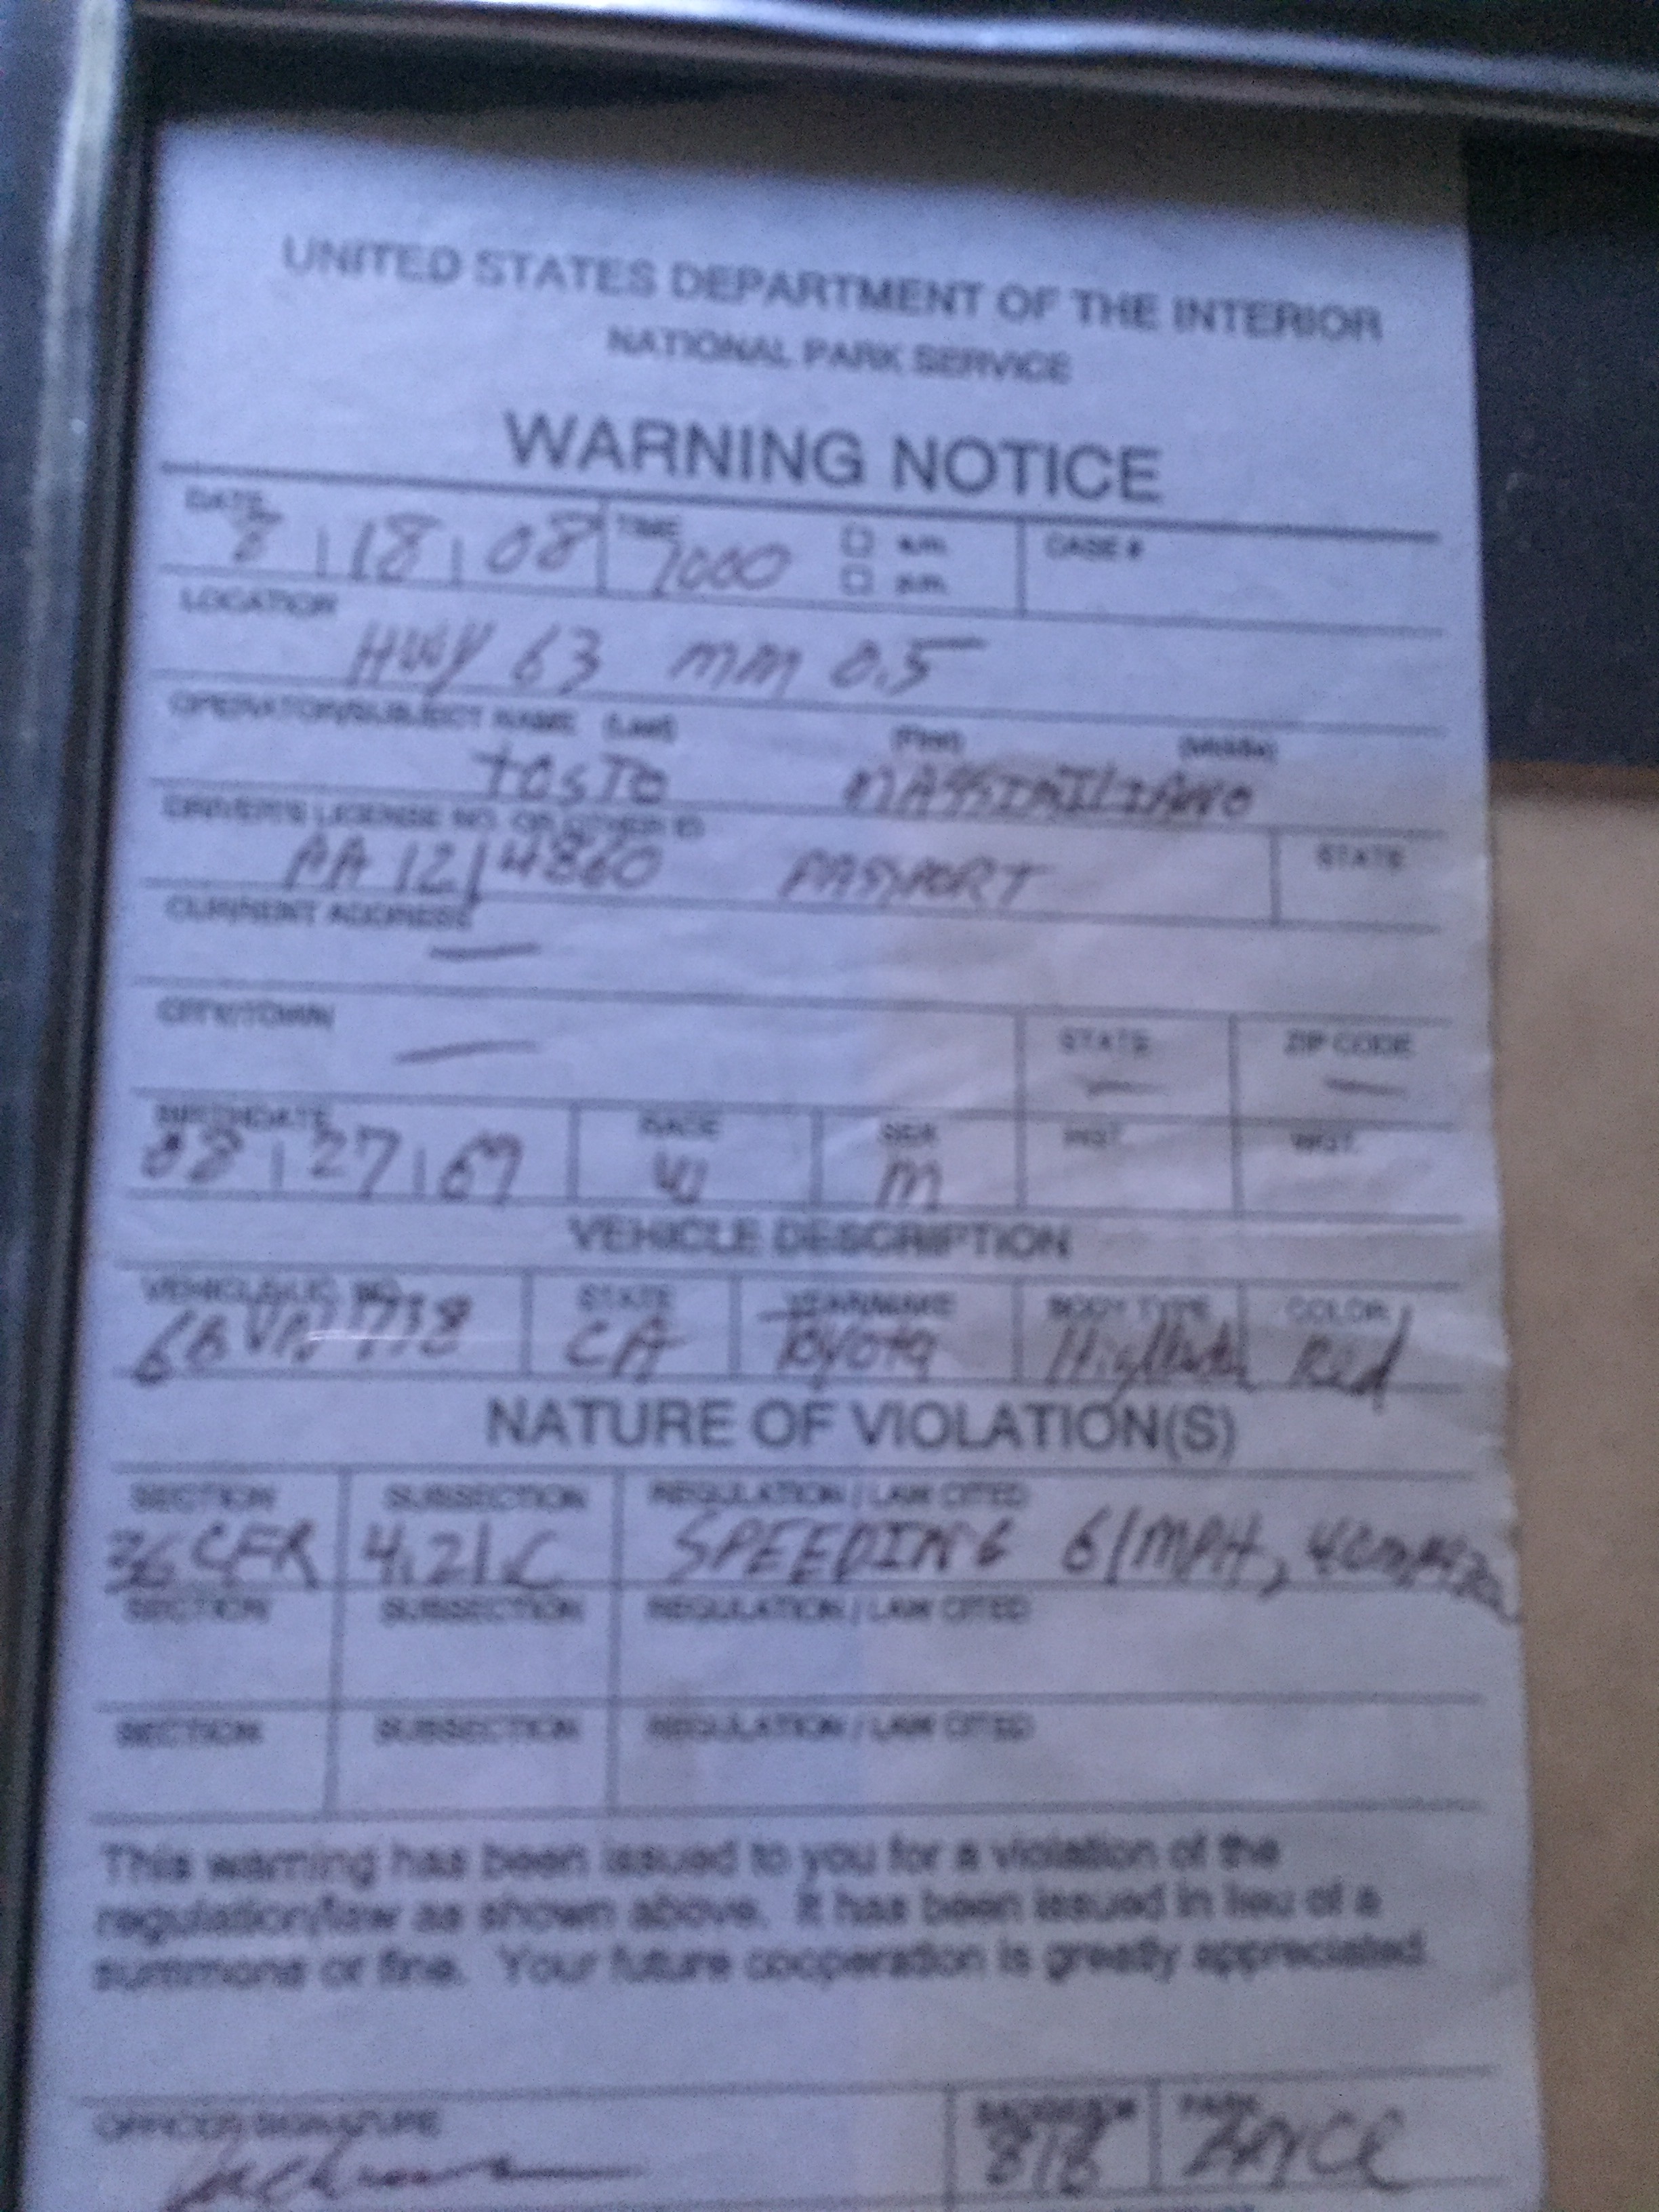 UNITED STATES DEPARTMENT OF THE INTERIOR
NATIONAL PARK SERVICE
WARNING NOTICE
DATE 8 | 18 | 08 TIME 1000 a.m. p.m. CASE #
LOCATION
HWY 63 MM 0.5
OPERATOR/SUBJECT NAME (Last) (First) (Middle)
TOSTO MASSIMILIANO
DRIVER'S LICENSE NO. OR OTHER ID STATE
AA 1214860 PASSPORT
CURRENT ADDRESS
—
CITY/TOWN STATE ZIP CODE
— — —
BIRTHDATE RACE SEX HGT. WGT.
08 | 27 | 69 W M
VEHICLE DESCRIPTION
VEHICLE LIC. NO. STATE YEAR/MAKE BODY TYPE COLOR
CA Toyota Highlander Red
NATURE OF VIOLATION(S)
SECTION SUBSECTION REGULATION / LAW CITED
36 CFR 4.21.C SPEEDING 61MPH, 40MPH
SECTION SUBSECTION REGULATION / LAW CITED
SECTION SUBSECTION REGULATION / LAW CITED
This warning has been issued to you for a violation of the
regulation/law as shown above. It has been issued in lieu of a
summons or fine. Your future cooperation is greatly appreciated.
OFFICER SIGNATURE PARK
BRYCE